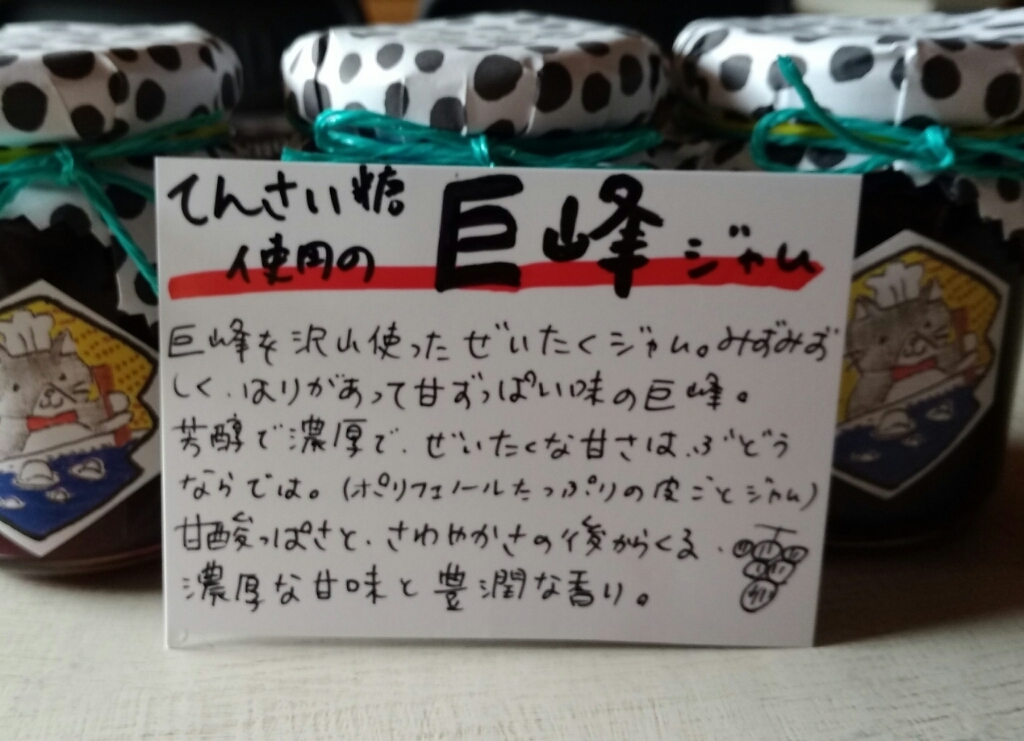 てんさい糖
使用の 巨峰 ジャム
巨峰を沢山使ったぜいたくジャム。みずみず
しく、はりがあって甘ずっぱい味の巨峰。
芳醇で濃厚で、ぜいたくな甘さは、ぶどう
ならでは。(ポリフェノールたっぷりの皮ごとジャム)
甘酸っぱさと、さわやかさの後からくる、
濃厚な甘味と豊潤な香り。